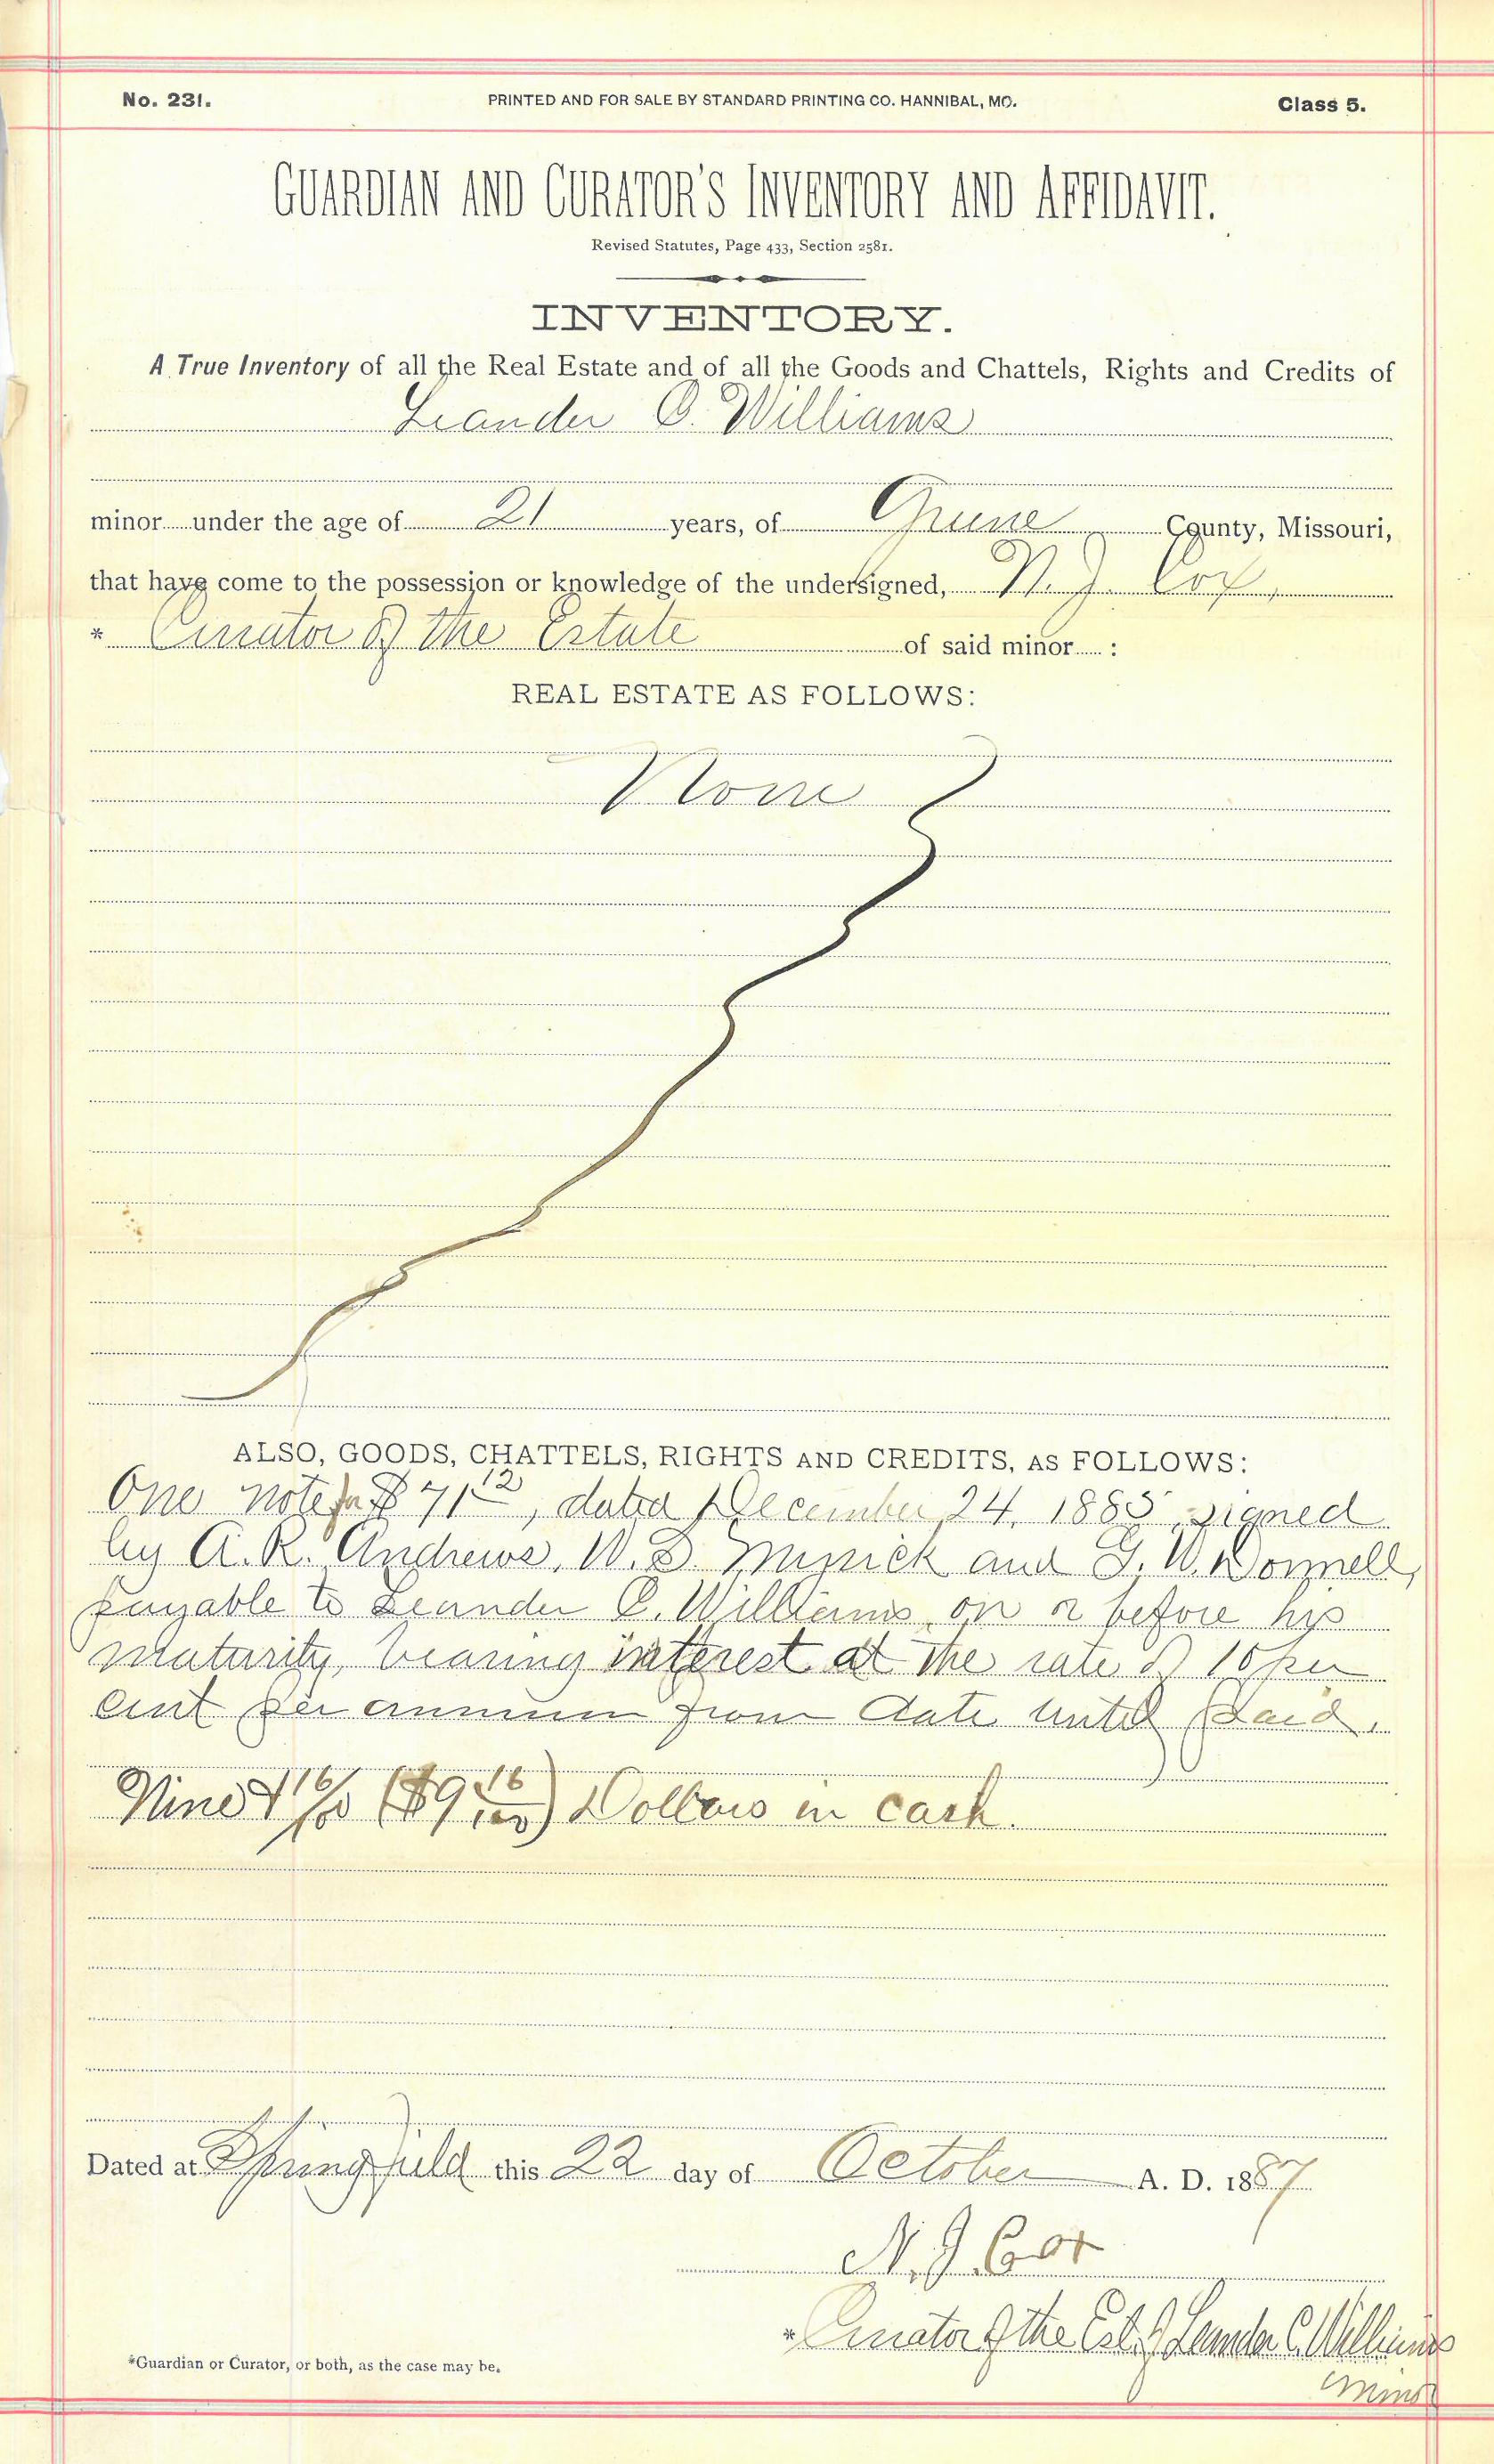 No. 231. PRINTED AND FOR SALE BY STANDARD PRINTING CO. HANNIBAL, MO. Class 5.
GUARDIAN AND CURATOR'S INVENTORY AND AFFIDAVIT.
Revised Statutes, Page 433, Section 2581.
INVENTORY.
A True Inventory of all the Real Estate and of all the Goods and Chattels, Rights and Credits of
Leander C. Williams
minor under the age of 21 years, of Greene County, Missouri,
that have come to the possession or knowledge of the undersigned, N. J. Cox,
* Curator of the Estate of said minor :
REAL ESTATE AS FOLLOWS:
None
ALSO, GOODS, CHATTELS, RIGHTS AND CREDITS, AS FOLLOWS:
One note for $71 12, dated December 24, 1885, signed
by A. R. Andrews, W. D. Minick and G. W. Donnell,
payable to Leander C. Williams on or before his
maturity, bearing interest at the rate of 10 per
cent per annum from date until paid.
Nine & 16/100 ($9 16/100) Dollars in cash.
Dated at Springfield this 22 day of October A. D. 1887
N. J. Cox
* Curator of the Est. of Leander C. Williams
Minor
*Guardian or Curator, or both, as the case may be.